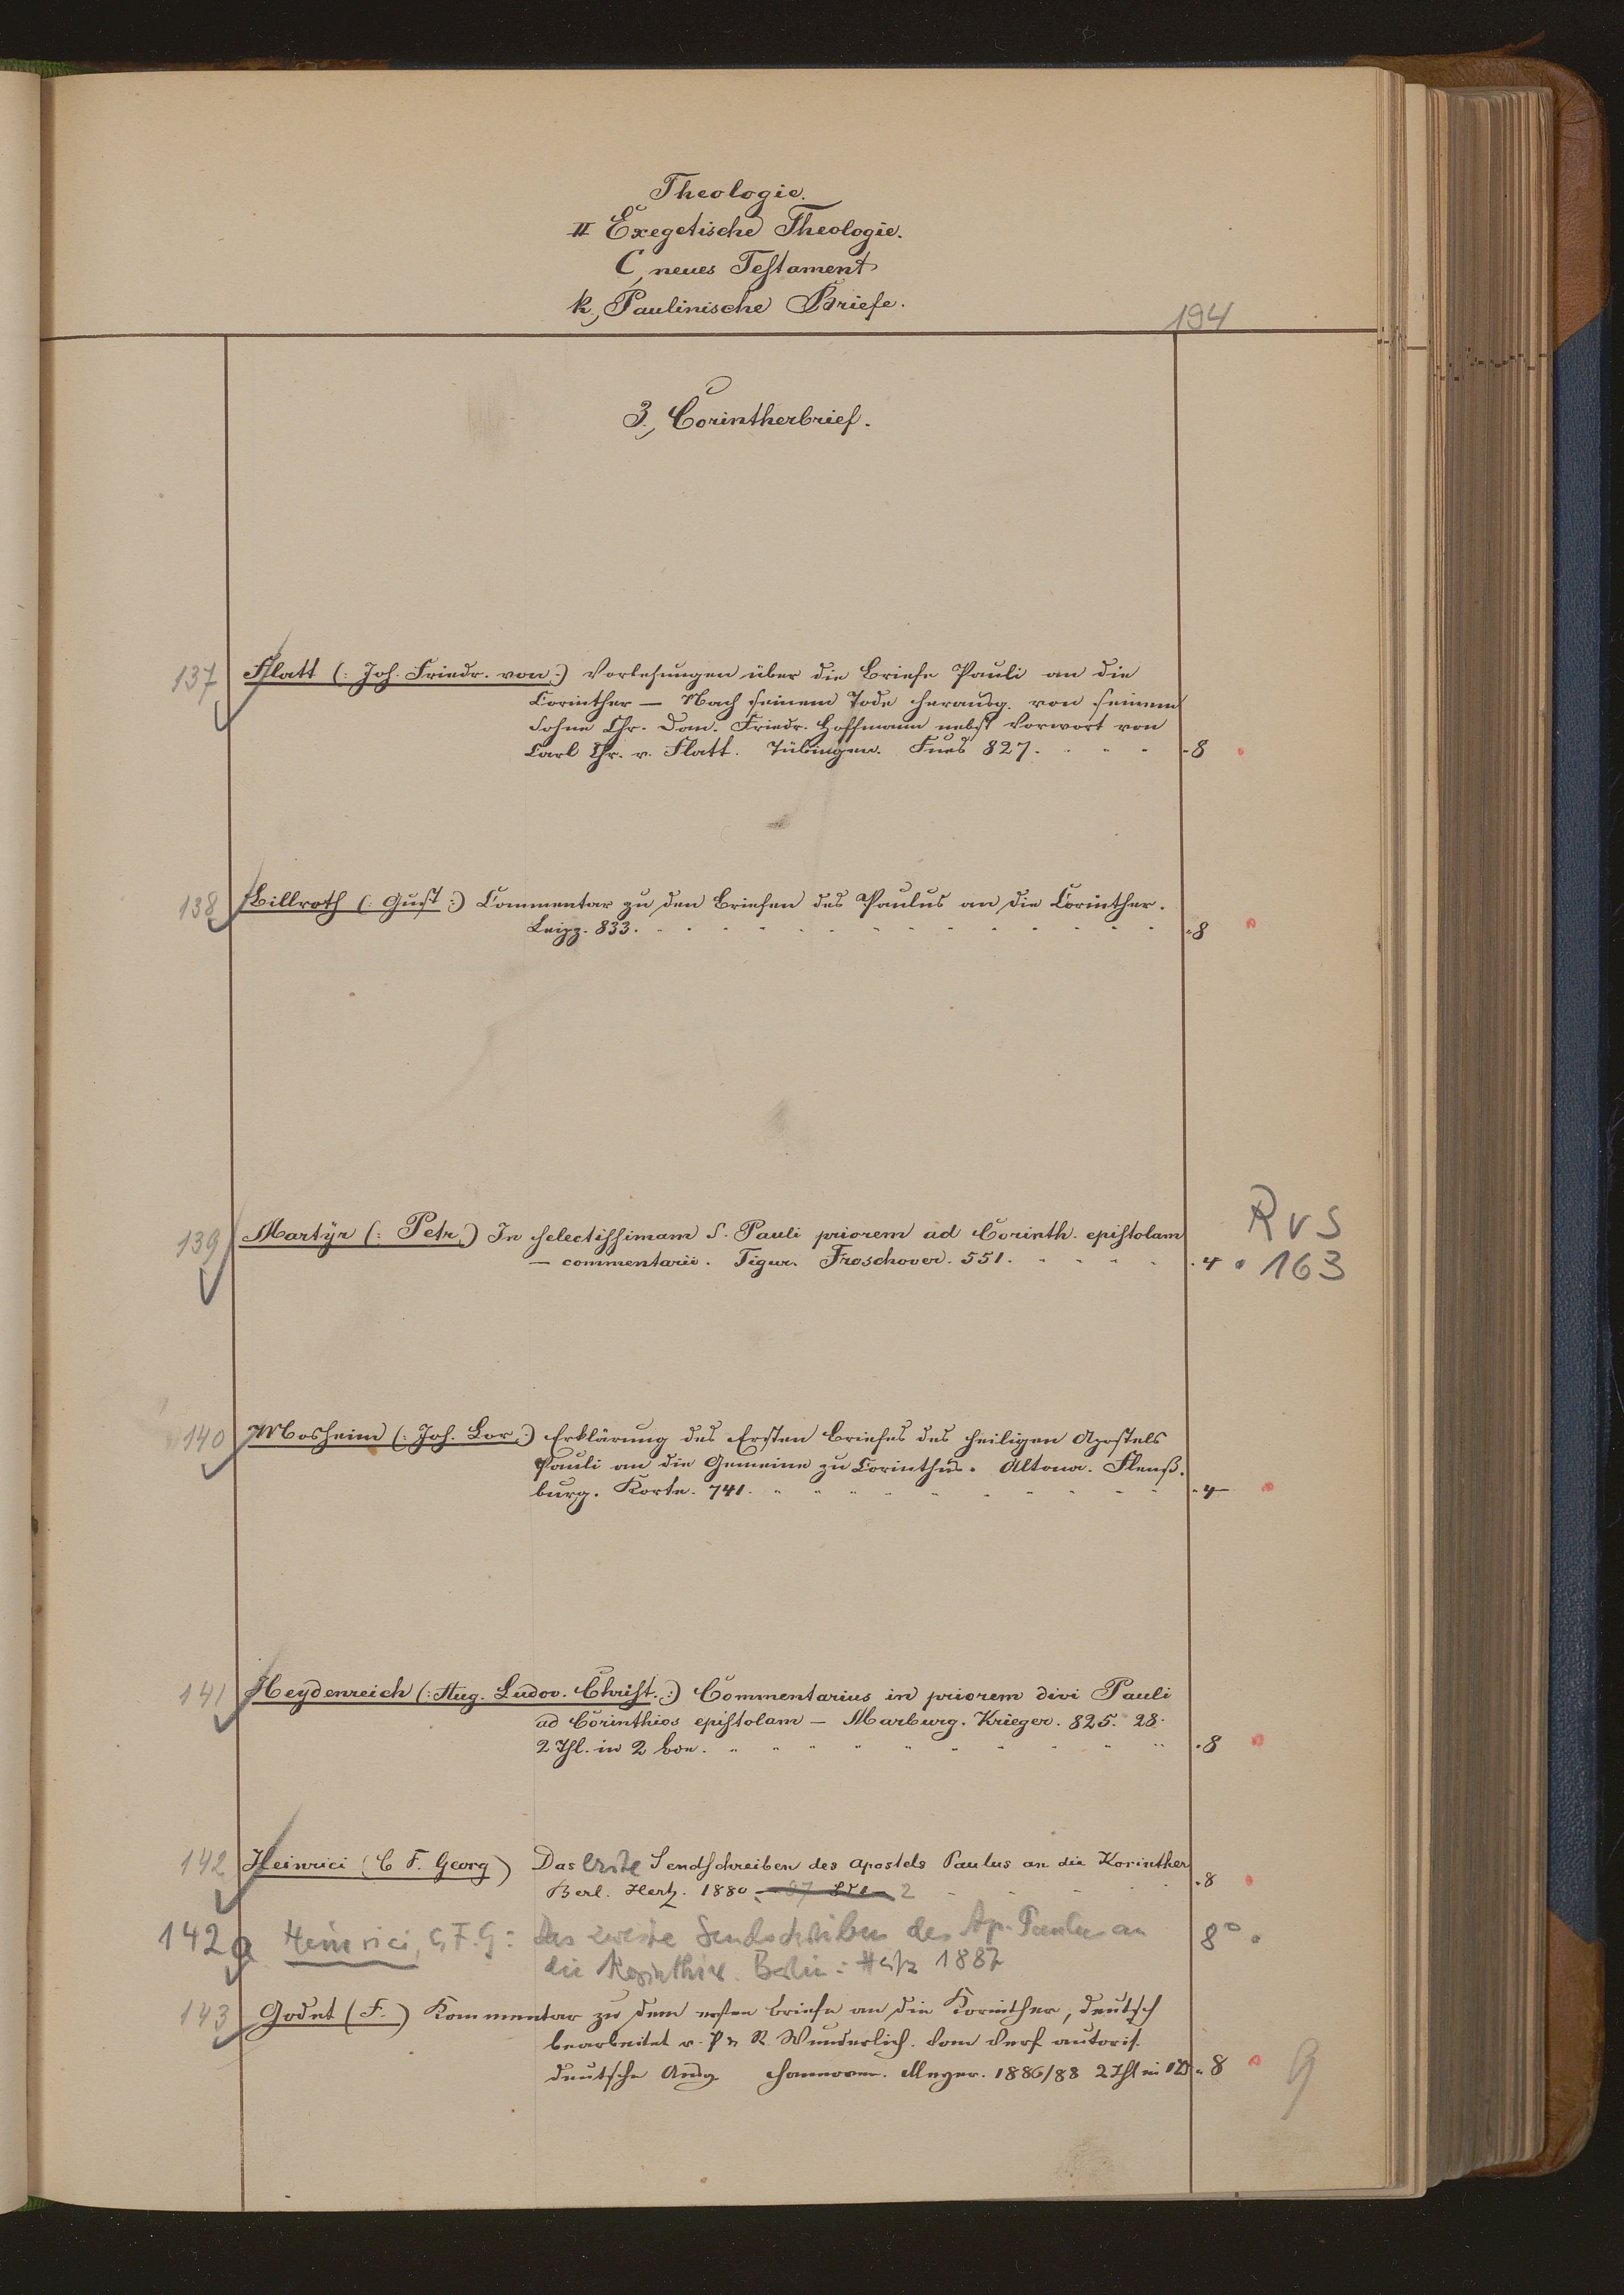 Theologie.
II Exegetische Theologie.
C, neues Testament
k., Paulinische Briefe.
194
3., Corintherbrief.
137 Flatt (: Joh. Friedr. von :) Vorlesungen über die Briefe Pauli an die
Corinther — Nach seinem Tode herausg. von seinem
Sohne Chr. Dan. Friedr. Hoffmann nebst Vorwort von
Carl Chr. v. Flatt. Tübingen. Fues 827. 8
138 Billroth (: Gust :) Commentar zu den Briefen des Paulus an die Corinther.
Leipz. 833. 8
139 Martÿr (: Petr.) In selectissimam S. Pauli priorem ad Corinth. epistolam
— commentarii. Tigur. Froschover. 551. 4
RVS
163
140 Mosheim (: Joh. Lor. :) Erklärung des Ersten Briefes des heiligen Apostels
Pauli an die Gemeine zu Corinthus. Altona. Flenß.
burg. Korte. 741. 4
141 Heydenreich (: Aug. Ludov. Christ. :) Commentarius in priorem divi Pauli
ad Corinthios epistolam — Marburg. Krieger. 825. 28.
2 Thl. in 2 Bde. 8
142 Heinrici (C F. Georg) Das erste Sendschreiben des Apostels Paulus an die Korinther
Berl. Hertz. 1880 2 8
142a Heinrici, C, F. G: Das zweite Sendschreiben des Ap. Paulus an
die Korinther. Berlin: Hertz 1887 8°
143 Godet (F.) Kommentar zu dem ersten Briefe an die Korinther, deutsch
bearbeitet v. P. u. K. Wunderlich. Vom Verf. autoris.
deutsche Ausg. Hannover. Meyer. 1886/88 2 Thl in 1 Bd 8
g